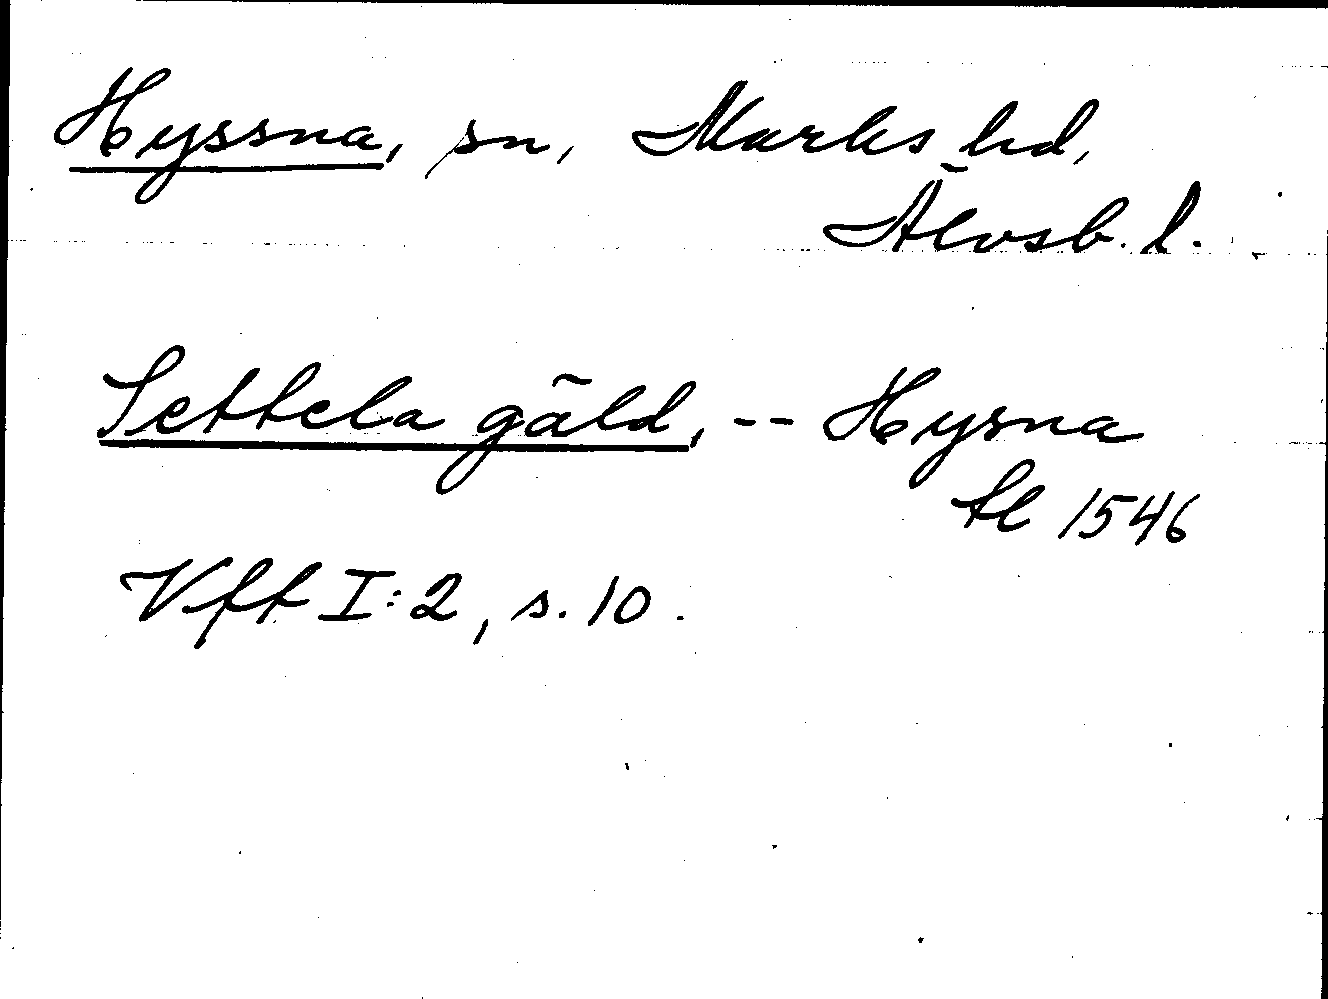 Hyssna, sn, Marks hd,
Älvsb. l.
Settela gäld, -- Hysna
tl 1546
Vfft I:2, s. 10.